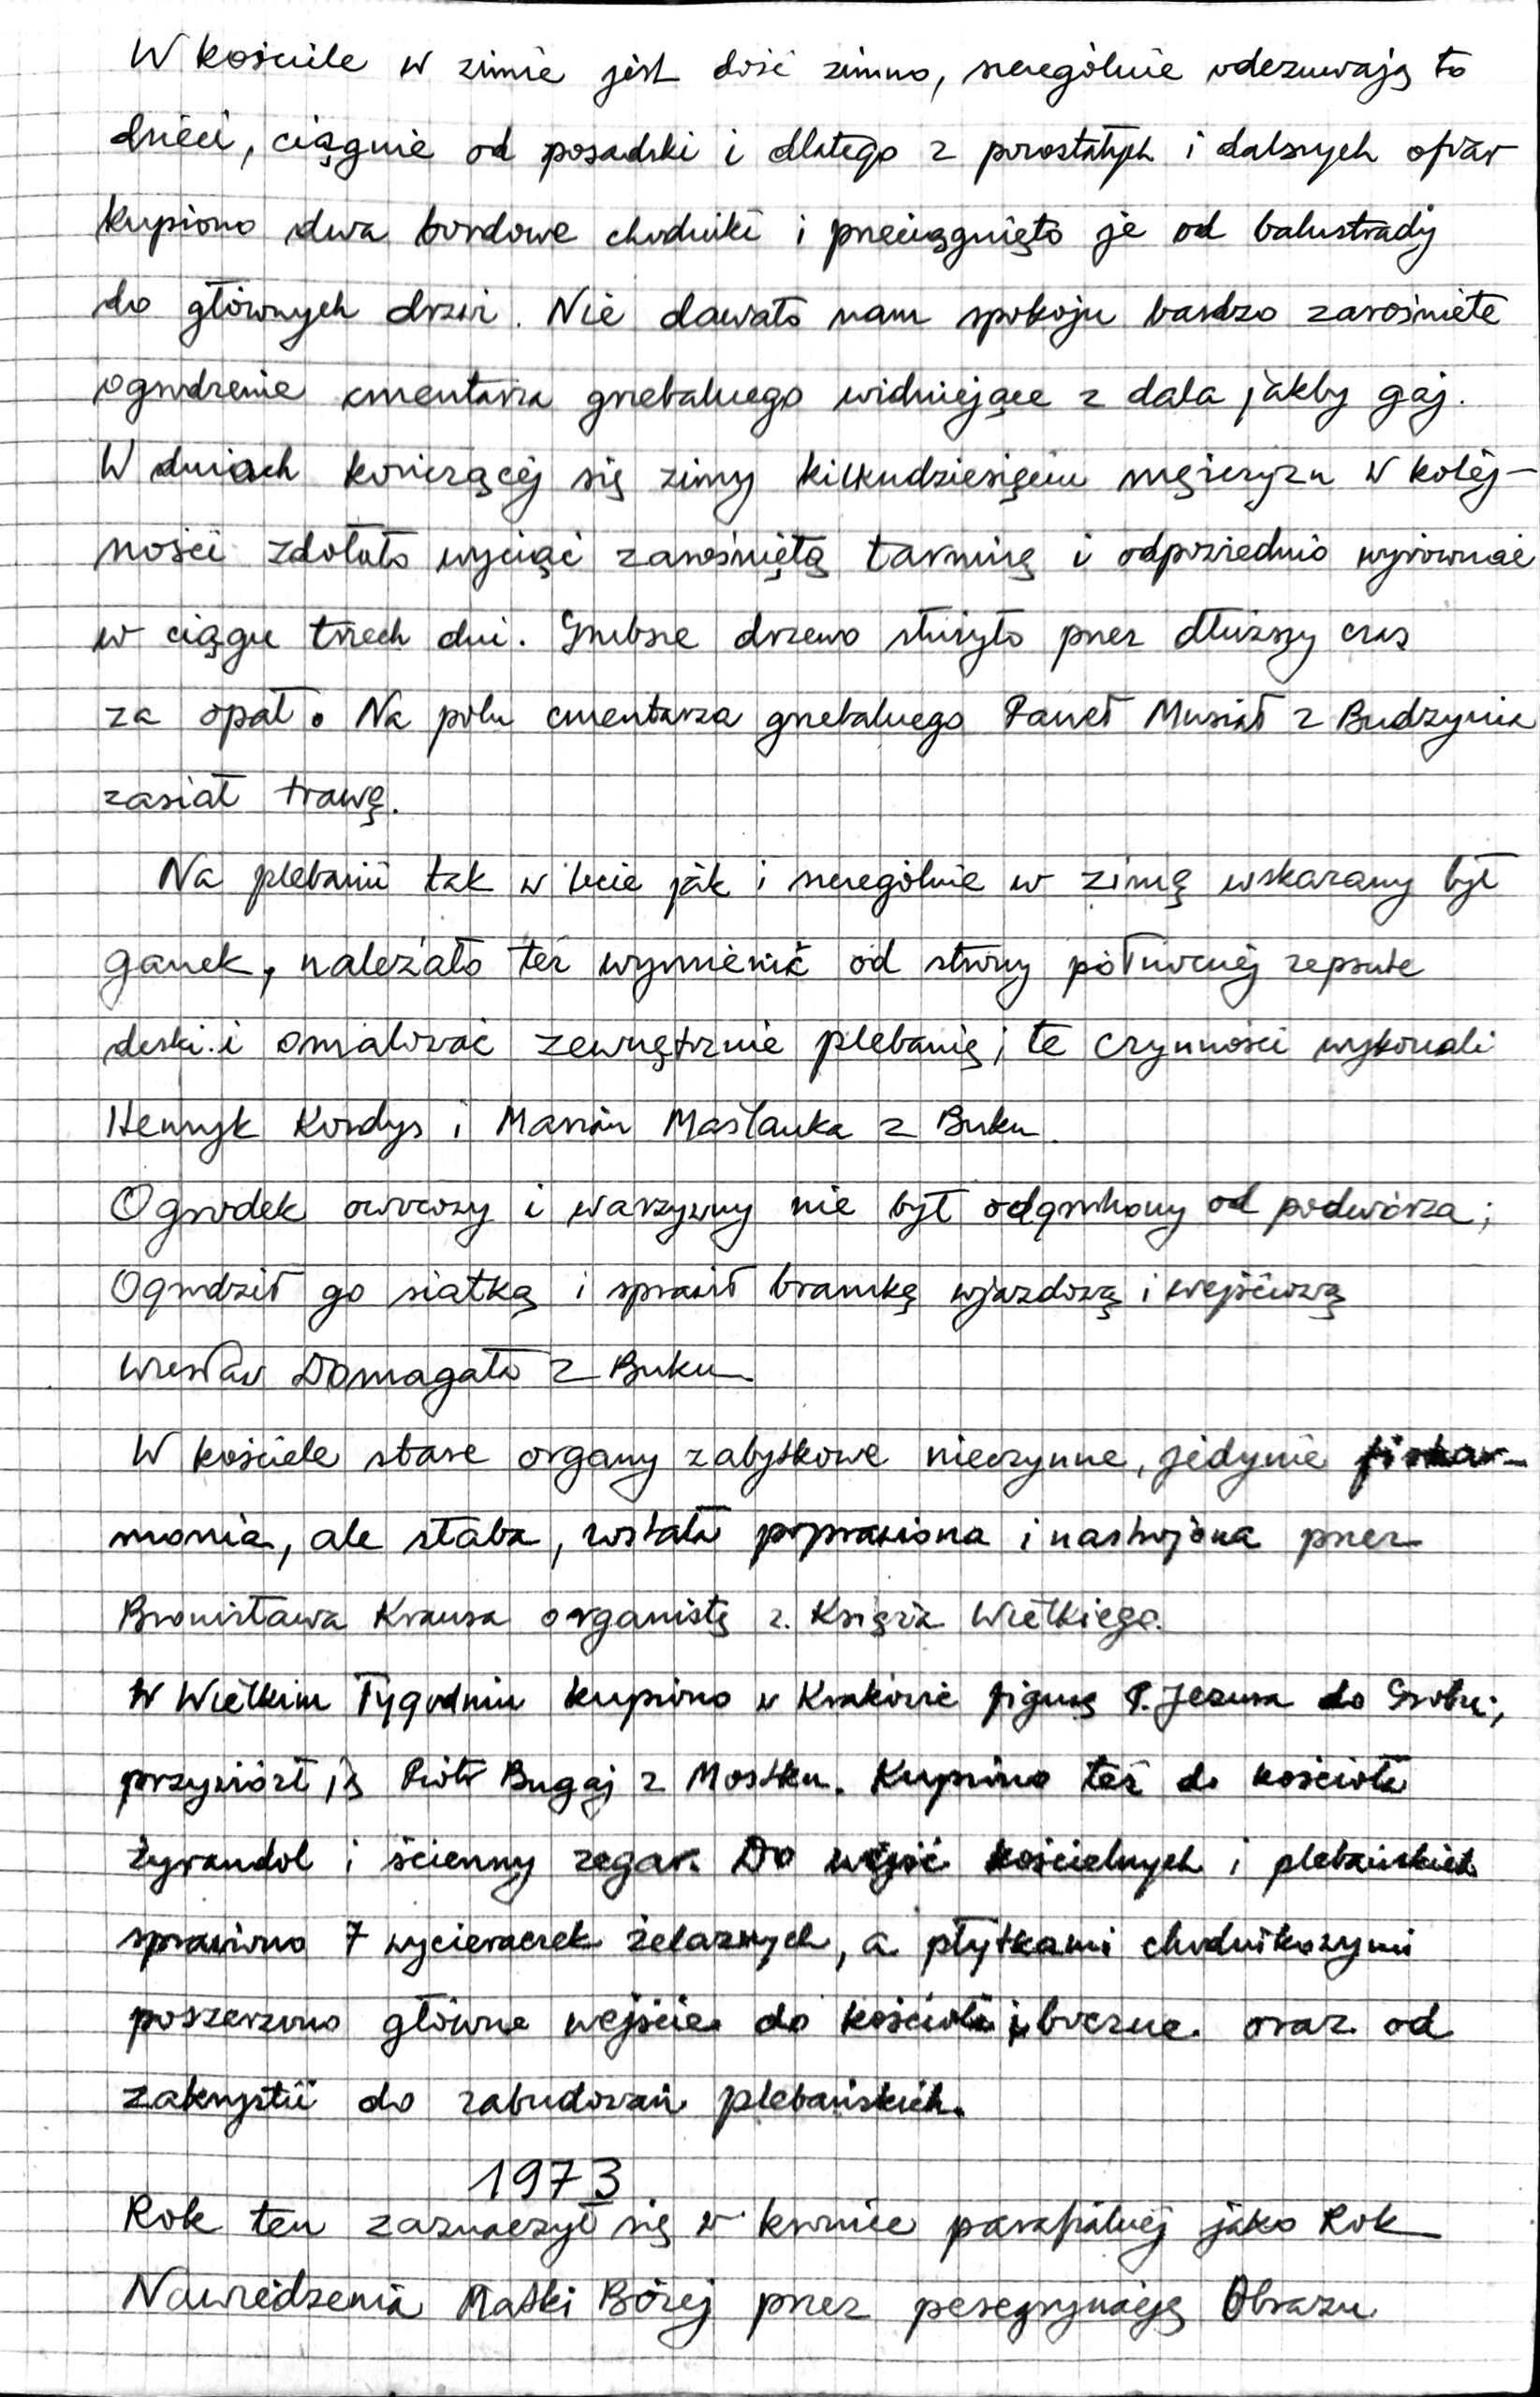 W kościele w zimie jest dość zimno, szczególnie odczuwają to
dzieci, ciągnie od posadzki i dlatego z pozostałych i dalszych ofiar
kupiono dwa bordowe chodniki i przeciągnięto je od balustrady
do głównych drzwi. Nie dawało nam spokoju bardzo zarośnięte
ogrodzenie cmentarza grzebalnego widniejące z dala jakby gaj.
W dniach kończącej się zimy kilkudziesięciu mężczyzn w kolej-
ności zdołało wyciąć zarośniętą tarninę i odpowiednio wyrównać
w ciągu trzech dni. Grubsze drzewo służyło przez dłuższy czas
za opał. Na polu cmentarza grzebalnego Paweł Musiał z Budzynia
zasiał trawę.
Na plebanii tak w lecie jak i szczególnie w zimę wskazany był
ganek, należało też wymienić od strony północnej zepsute
deski i omalować zewnętrznie plebanię; te czynności wykonali
Henryk Kordys i Marian Maślanka z Buku.
Ogrodek owocowy i warzywny nie był odgrodzony od podwórza;
Ogrodził go siatką i sprawił bramkę wjazdową i wejściową
Wiesław Domagała z Buku
W kościele stare organy zabytkowe nieczynne, jedynie fishar-
monia, ale słaba, została poprawiona i nastrojona przez
Bronisława Krausa organistę z Książa Wielkiego.
W Wielkim Tygodniu kupiono w Krakowie figurę P. Jezusa do Grobu;
przywiózł ją Piotr Bugaj z Mostku. Kupiono też do kościoła
żyrandol i ścienny zegar. Do wejść kościelnych i plebańskich
sprawiono 7 wycieraczek żelaznych, a płytkami chodnikowymi
poszerzono główne wejście do kościoła i boczne oraz od
zakrystii do zabudowań plebańskich.
1973
Rok ten zaznaczył się w kronice parafialnej jako Rok
Nawiedzenia Matki Bożej przez peregrynację Obrazu